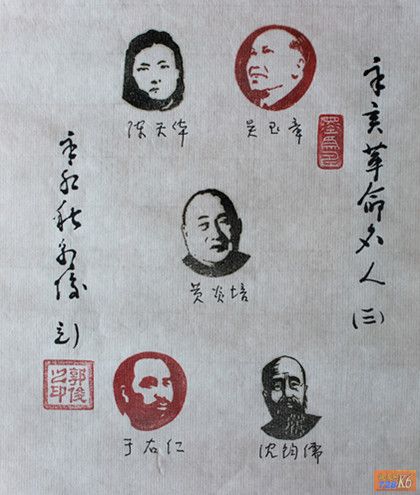 辛亥革命名人(三)
陈天华
吴玉章
黄炎培
于右仁
沈钧儒
辛卯秋郭俊刻
郭俊之印